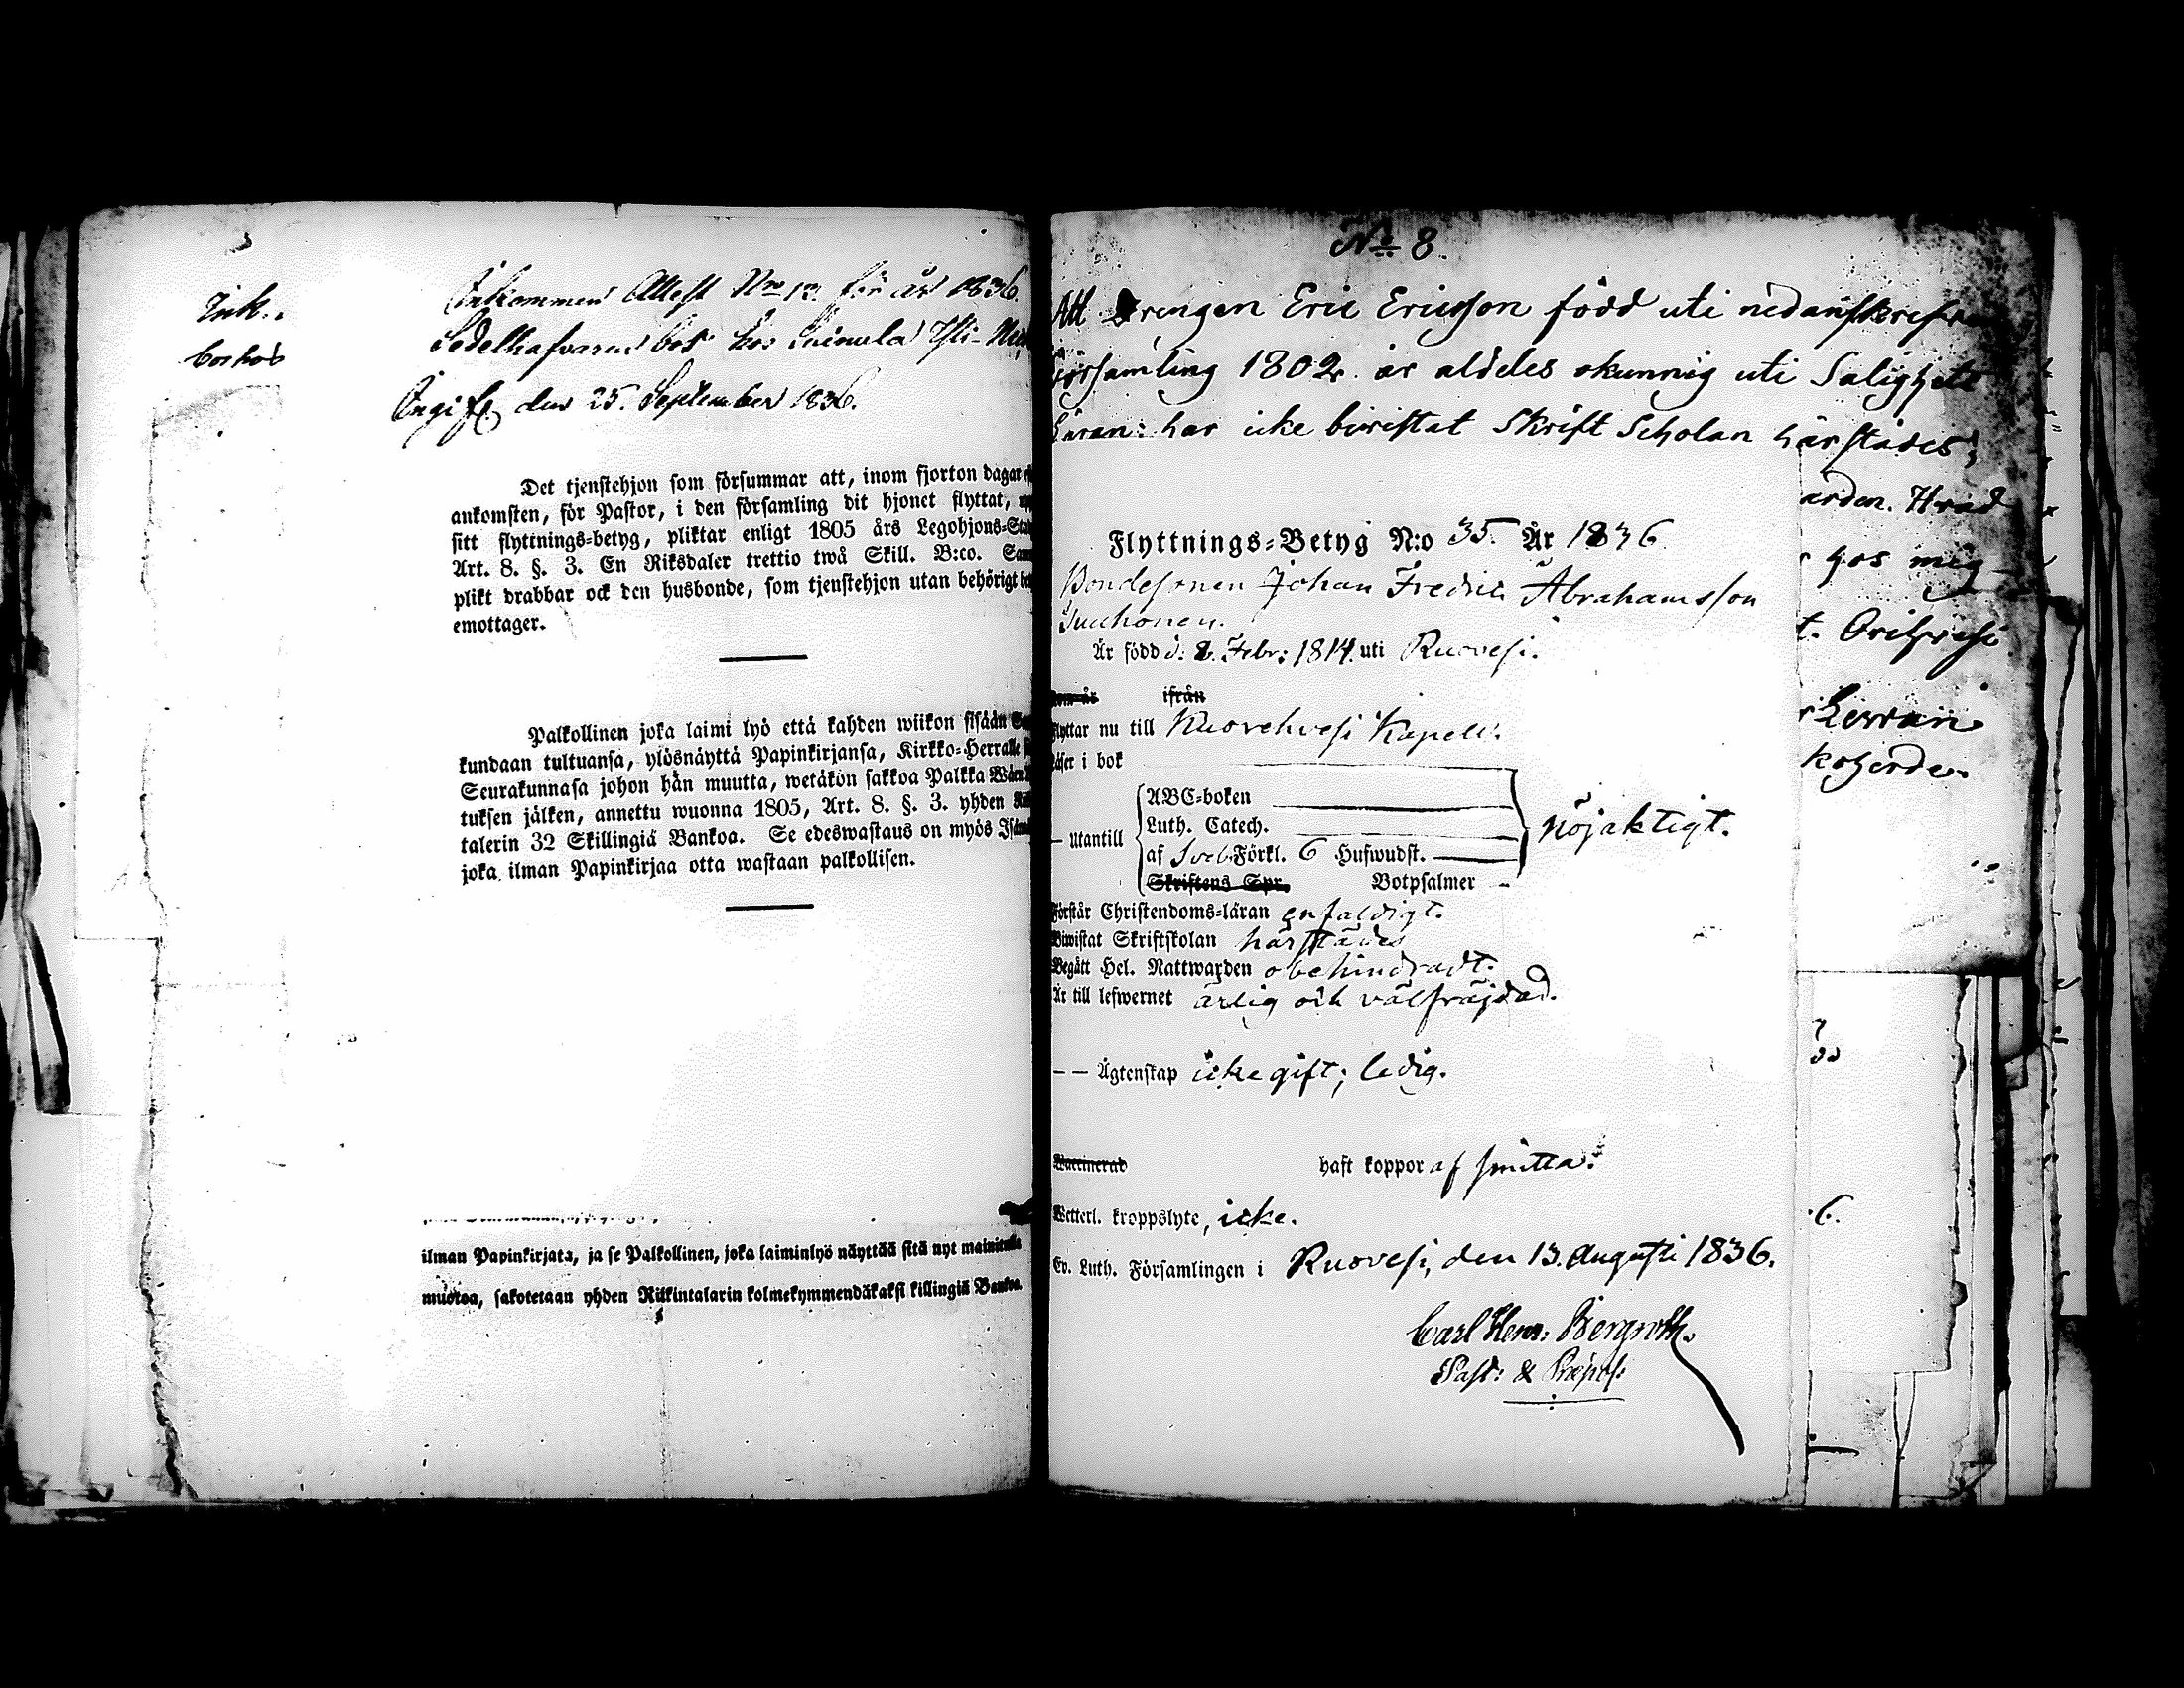 Ink.
Inkommen Attest Nro 12. för år 1836.
Sedelhafvaren bor hos
Ingif. den 25. September 1836.
Det tjenstehjon som försummar att, inom fjorton dagar
ankomsten, för Pastor, i den församling dit hjonet flyttat,
sitt flyttnings-betyg, pliktar enligt 1805 års Legohjons-Sta
Art. 8. §. 3. En Riksdaler trettio twå Skill. B:co. Sam
plikt drabbar ock den husbonde, som tjenstehjon utan behörigt
emottager.
Palkollinen joka laimi lyö että kahden wiikon sisään
kundaan tultuansa, ylösnäyttä Papinkirjansa, Kirkko-Herralle
Seurakunnasa johon hän muutta, wetäkön sakkoa Palkka
tuksen jälken, annettu wuonna 1805, Art. 8. §. 3. yhden
talerin 32 Skillingiä Bankoa. Se edeswastaus on myös
joka ilman Papinkirjaa otta wastaan palkollisen.
ilman Papinkirjata, ja se Palkollinen, joka laiminlyö näyttää sitä nyt mainittua
muotoa, sakotetaan yhden Riikintalarin kolmekymmendäkaksi killingiä Bankoa.
No 8
Att Drengen Eric Ericsson född uti nedanskrefne
församling 1802. är aldeles okunnig uti Salighets
Läran: har icke bivistat Skrift Scholan härstädes;
arden. Hvad
hos mig
t. Orihvesi
koherde.
Flyttnings-Betyg N:o 35. År 1836
Bondesonen Johan Fredric Abrahamsson
Är född d: 8. Febr: 1814. uti Ruovesi.
ifrån
Flyttar nu till Kuorehvesi Kapell.
Läser i bok
— Utantill
ABC-boken
Luth. Catech.
af Sveb. Förkl. 6 Hufwudst.
Skriftens Spr. Botpsalmer
nöjaktigt.
Förstår Christendoms-läran enfaldigt.
Biwistat Skriftskolan härstädes
Begått Hel. Nattwarden obehindradt.
Är till lefwernet ärlig och välfräjdad.
— — Ägtenskap icke gift; ledig.
Waccinerad haft koppor af smitta.
Wetterl. kroppslyte, icke.
Ev. Luth. Församlingen i Ruovesi, den 13. Augusti 1836.
Carl Henr: Bergroth.
Past: & Præpos:
6.